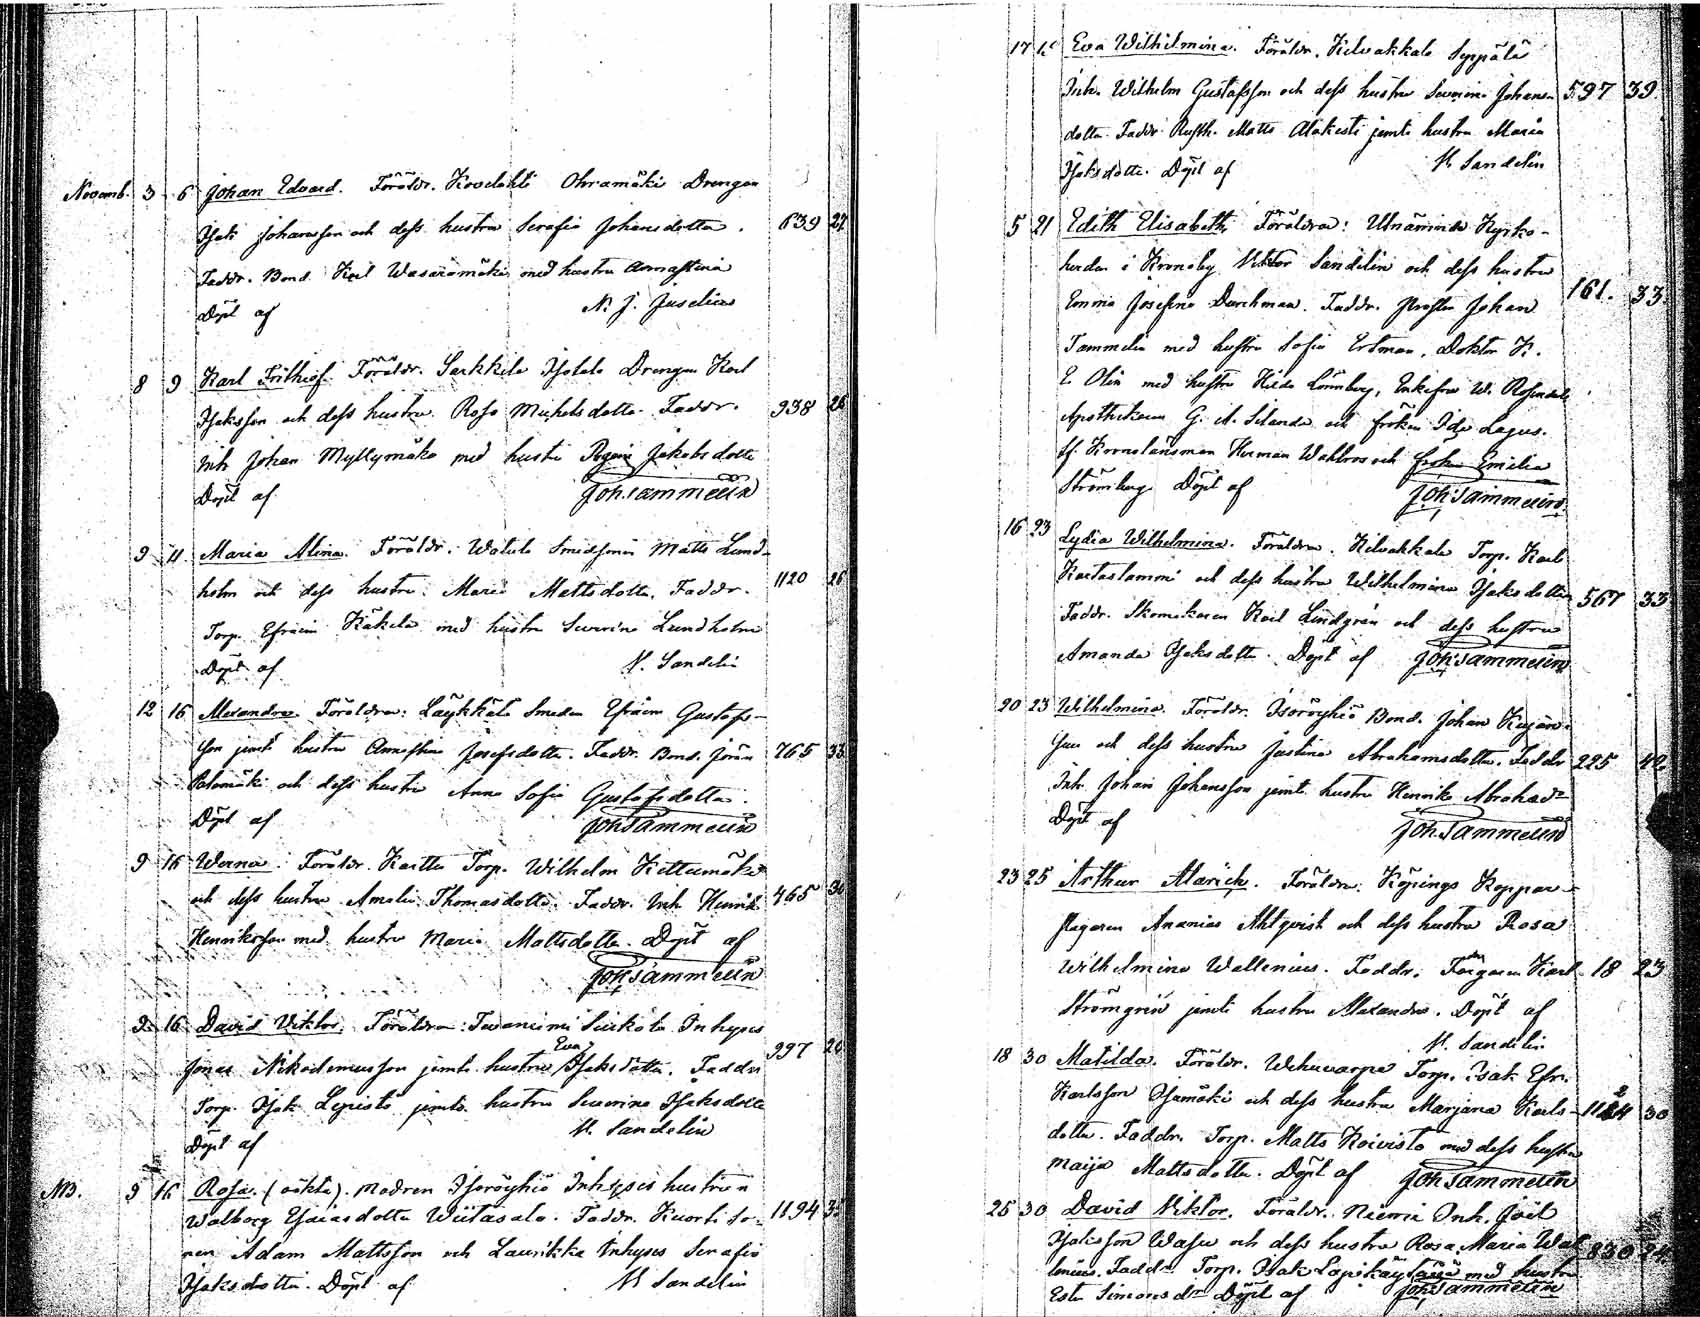 Novemb. 3 6 Johan Edvard. Föräldr. Kovelahti Ohramäki Drengen
Isak Johansson och dess hustru Serafia Johansdotter. 639 27
Faddr. Bond. Karl Wasaramäki med hustru Annastina
Döpt af N. J. Juselius
8 9 Karl Frithiof. Föräldr. Sarkkila Isotalo Drengen Karl
Isaksson och dess hustru Rosa Michelsdotter. Faddr. 938 26
Inh. Johan Myllymäki med hustru Regina Jakobsdotter
Döpt af Joh. Tammelin
9 11 Maria Alina. Föräldr. Watula Smidssonen Matts Lund-
holm och dess hustru Maria Mattsdotter. Faddr. 1120 26
Torp. Efraim Käkelä med hustru Severina Lundholm
Döpt af V. Sandelin
12 16 Alexandra. Föräldrar: Läykkälä Smeden Efraim Gustafs-
son jemte hustru Annastina Josefsdotter. Faddr. Bond. Jöran 765 33
Palomäki och dess hustru Anna Sofia Gustafsdotter.
Döpt af Joh Tammelin
9 16 Werner. Föräldr. Karttu Torp. Wilhelm Kettumäki
och dess hustru Amalia Thomasdotter. Faddr. Inh. Henrik 465 30
Henriksson med hustru Maria Mattsdotter. Döpt af
Joh. Tammelin
9 16 David Viktor. Föräldrar: Tevaniemi Inhyses
Eva 997
Jonas Nikodemusson jemte hustru Isaksdotter. Faddr
Torp. Isak Lepistö jemte hustru Severina Isaksdotter
Döpt af V. Sandelin
NB. 9 16 Rosa. (oäkta). Modren Isoröyhiö Inhyses hustrun
Walborg Esaiasdotter Wiitasalo. Faddr. Kuorti So- 1194
nen Adam Mattsson och Laurikka Inhyses Serafia
Isaksdotter. Döpt af V Sandelin
17 Eva Wilhelmina. Föräldr. Kilvakkala Seppälä
Inh. Wilhelm Gustafsson och dess hustru Severina Johans- 597 39
dotter. Faddr. Rusth. Matts Alakesti jemte hustru Maria
Isaksdotter. Döpt af V. Sandelin
5 21 Edith Elisabeth. Föräldrar: Utnämnde Kyrko-
herden i Kronoby Viktor Sandelin och dess hustru
161. 33.
Emma Josefina Durchman. Faddr. Prosten Johan
Tammelin med hustru Sofia Ertman, Doktor K.
E. Olin med hustru Hilda Lönnberg, Enkefru W. Rosendal
Apothekaren G. A. Selander och fröken Ida Lagus.
Kronolänsman Herman Wahlroos och fröken Emilia
Strömberg Döpt af Joh. Tammelin
16 23 Lydia Wilhelmina. Föräldrar. Kilvakkala Torp. Karl
Kartaslammi och dess hustru Wilhelmina Isaksdotter 567 33
Faddr. Skomakaren Karl Lindgrén och dess hustru
Amanda Isaksdotter. Döpt af Joh. Tammelin
20 23 Wilhelmina. Föräldr. Isoröyhiö Bond. Johan
och dess hustru Justina Abrahamsdotter. Faddr 225 42.
Inh. Johan Johansson jemte hustru Henrika Abrahamsdr
Döpt af Joh Tammelin
23 25 Arthur Alarich. Föräldrar. Köpings Koppar-
slagaren Ananias Ahlqvist och dess hustru Rosa
Wilhelmina Wallenius. Faddr. Färgaren Karl 18 23
Strömgrén jemte hustru Alexandra. Döpt af
V. Sandelin
18 30 Matilda. Föräldr. Wehuvarpe Torp. Isak Efr.
Karlsson Isomäki och dess hustru Marjana Karls- 1124 30
dotter. Faddr. Torp. Matts Koivisto med dess hustru
Maija Mattsdotter. Döpt af Joh Tammelin
25 30 David Viktor. Föräldr. Niemi Inh. Joel
Isaksson Wasu och dess hustru Rosa Maria Wal- 830 24.
lenius. Faddr. Torp. Isak Lapikäys med hustru
Ester Simonsdr Döpt af Joh Tammelin